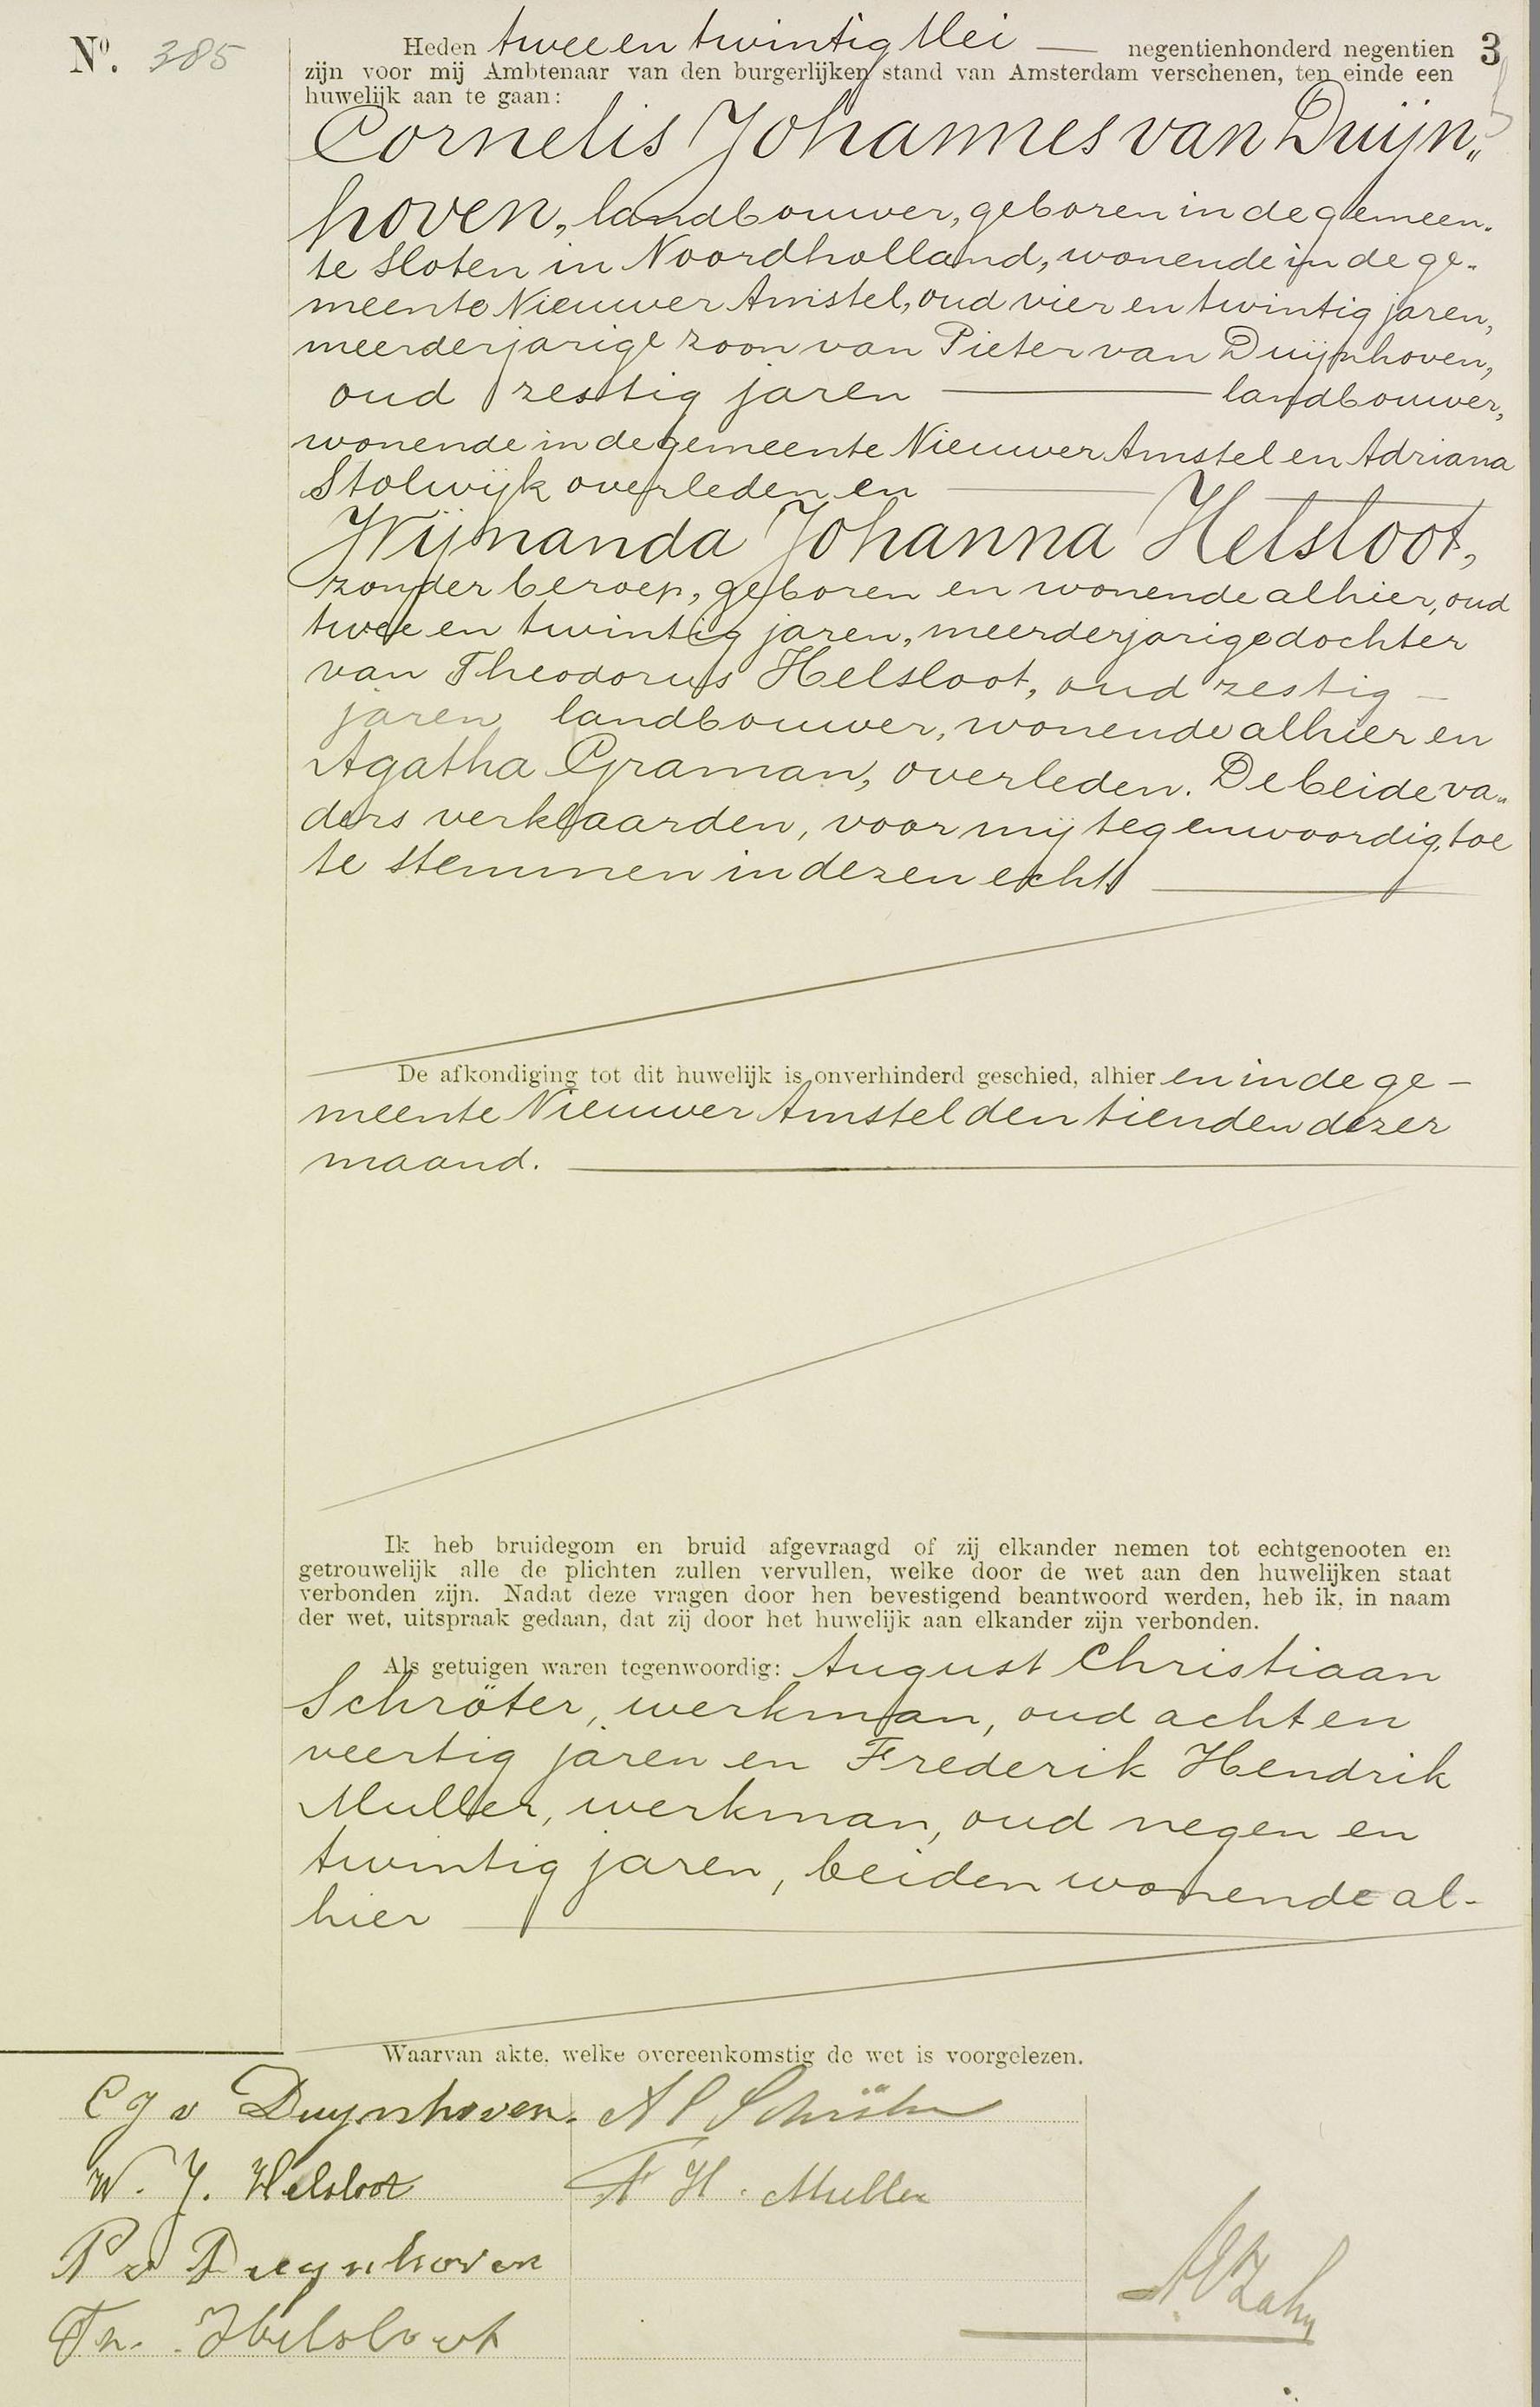 Nº. 385
Heden twee en twintig Mei — negentienhonderd negentien 3
zijn voor mij Ambtenaar van den burgerlijken stand van Amsterdam verschenen, ten einde een
huwelijk aan te gaan:
Cornelis Johannes van Duijn„
hoven, landbouwer, geboren in de gemeen„
te Sloten in Noordholland, wonende in de ge„
meente Nieuwer Amstel, oud vier en twintig jaren,
meerderjarige zoon van Pieter van Duijnhoven,
oud zestig jaren — landbouwer,
wonende in de gemeente Nieuwer Amstel en Adriana
Stolwijk overleden en —
Wijnanda Johanna Helsloot,
zonder beroep, geboren en wonende alhier, oud
twee en twintig jaren, meerderjarige dochter
van Theodorus Helsloot, oud zestig —
jaren landbouwer, wonende alhier en
Agatha Graman, overleden. De beide va„
ders verklaarden, voor mij tegenwoordig, toe
te stemmen in dezen echt —
De afkondiging tot dit huwelijk is onverhinderd geschied, alhier en in de ge —
meente Nieuwer Amstel den tienden dezer
maand. —
Ik heb bruidegom en bruid afgevraagd of zij elkander nemen tot echtgenooten en
getrouwelijk alle de plichten zullen vervullen, welke door de wet aan den huwelijken staat
verbonden zijn. Nadat deze vragen door hen bevestigend beantwoord werden, heb ik, in naam
der wet, uitspraak gedaan, dat zij door het huwelijk aan elkander zijn verbonden.
Als getuigen waren tegenwoordig: August Christiaan
Schröter, werkman, oud acht en
veertig jaren en Frederik Hendrik
Muller, werkman, oud negen en
twintig jaren, beiden wonende al-
hier —
Waarvan akte, welke overeenkomstig de wet is voorgelezen.
C J v Duynhoven. A C Schröter
W. J. Helsloot F H. Muller
P v Duynhoven
Th. Helsloot